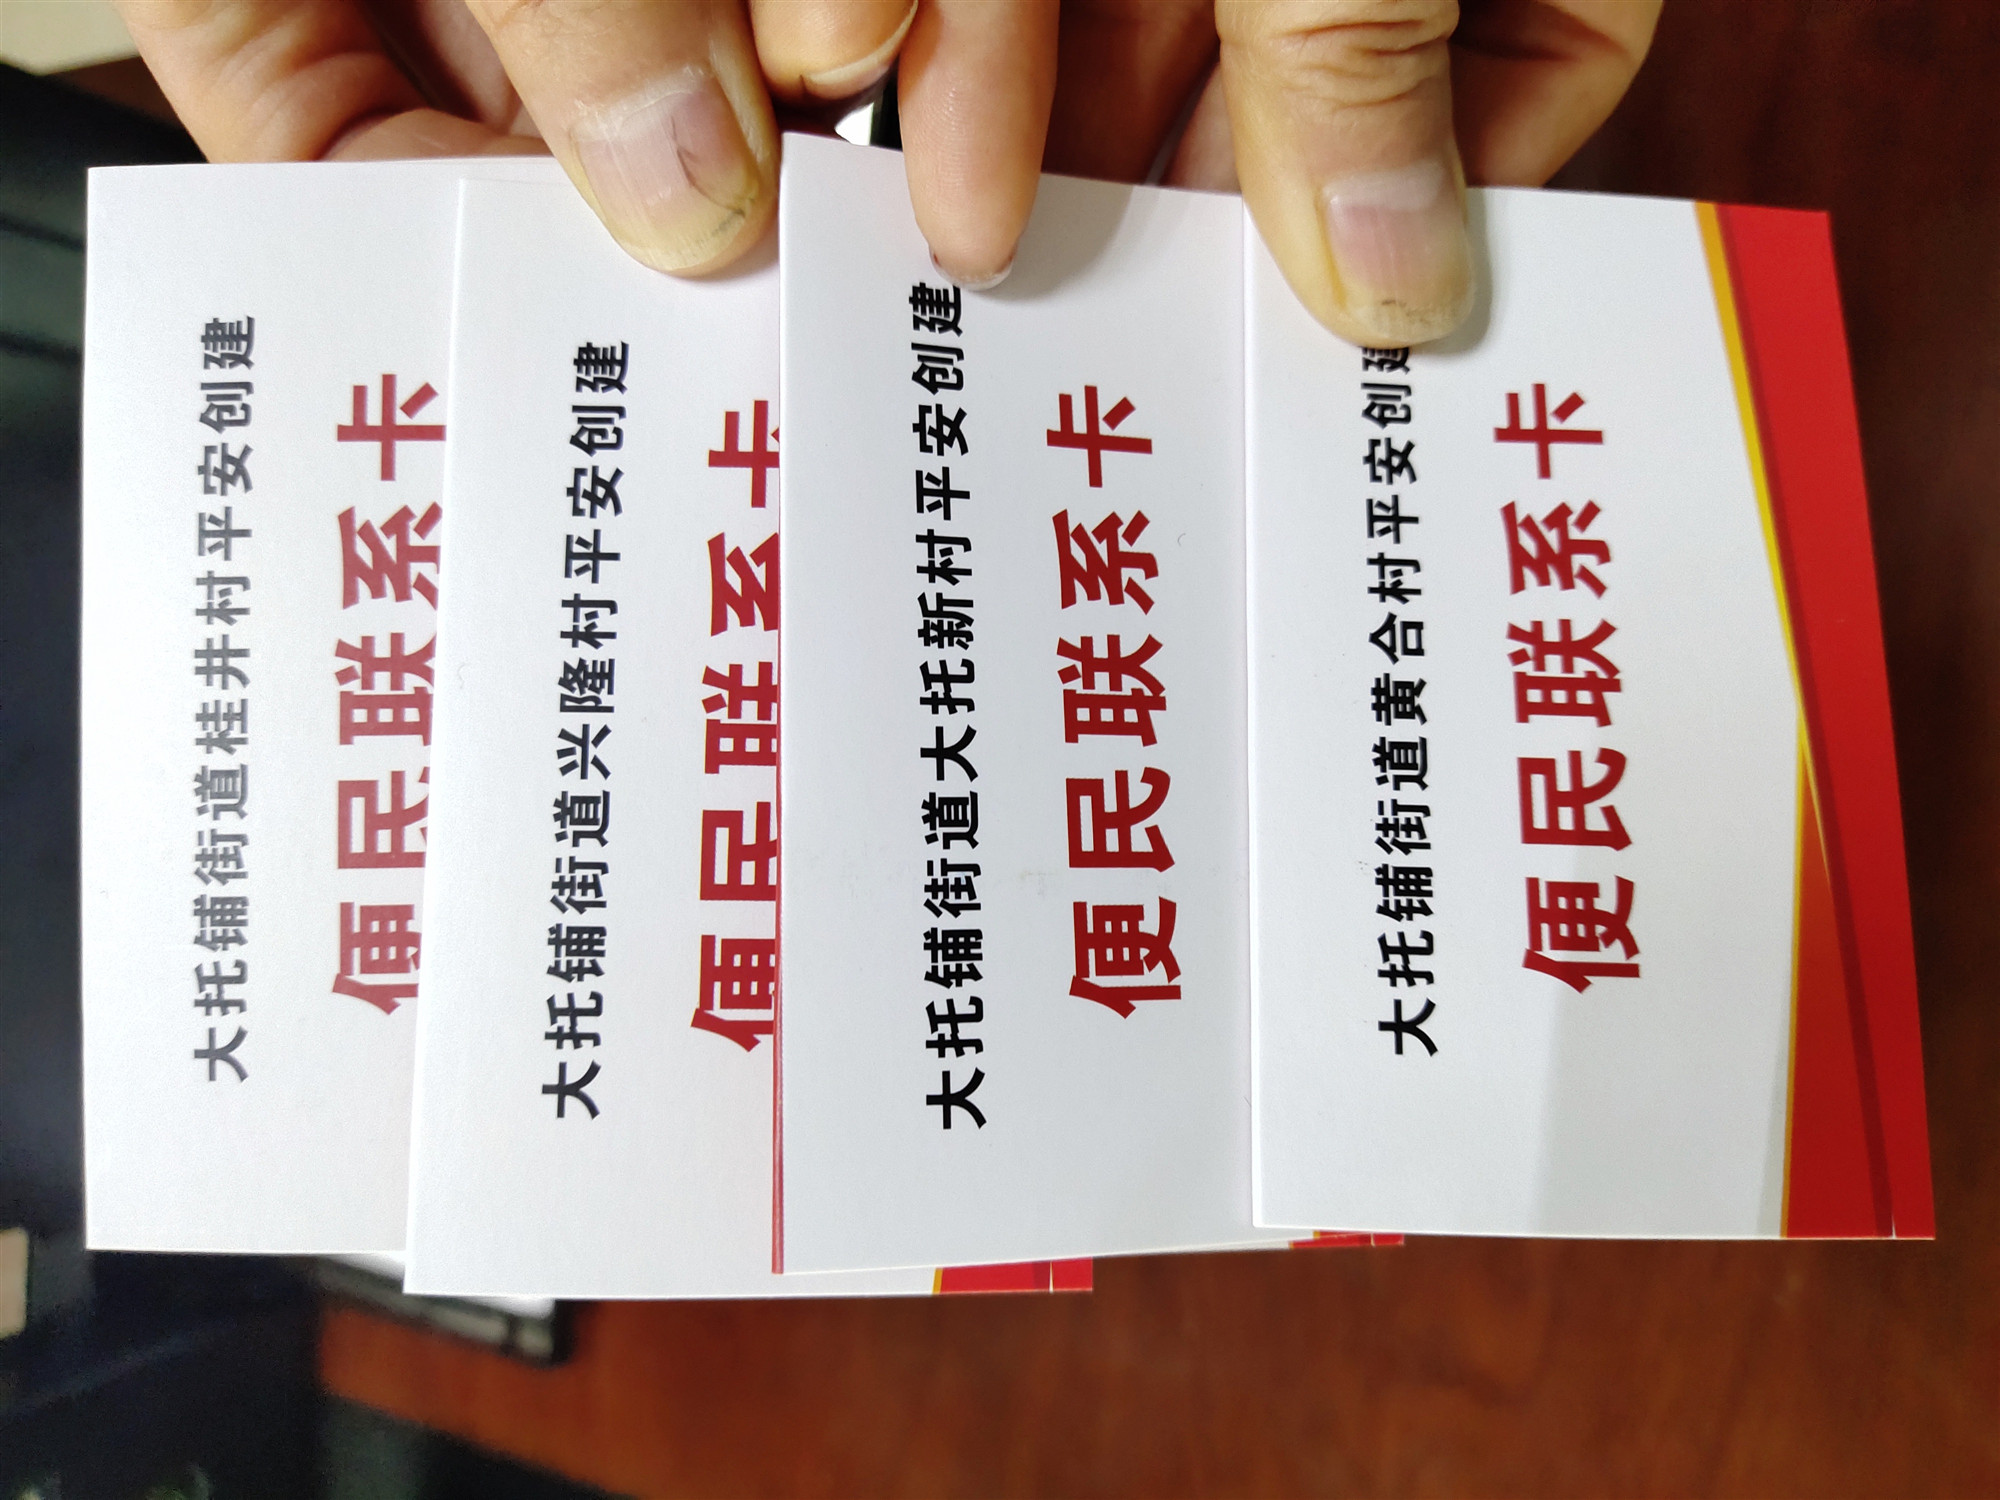 大托铺街道桂井村平安创建
便民联系卡
大托铺街道兴隆村平安创建
便民联系卡
大托铺街道大托新村平安创建
便民联系卡
大托铺街道黄合村平安创建
便民联系卡